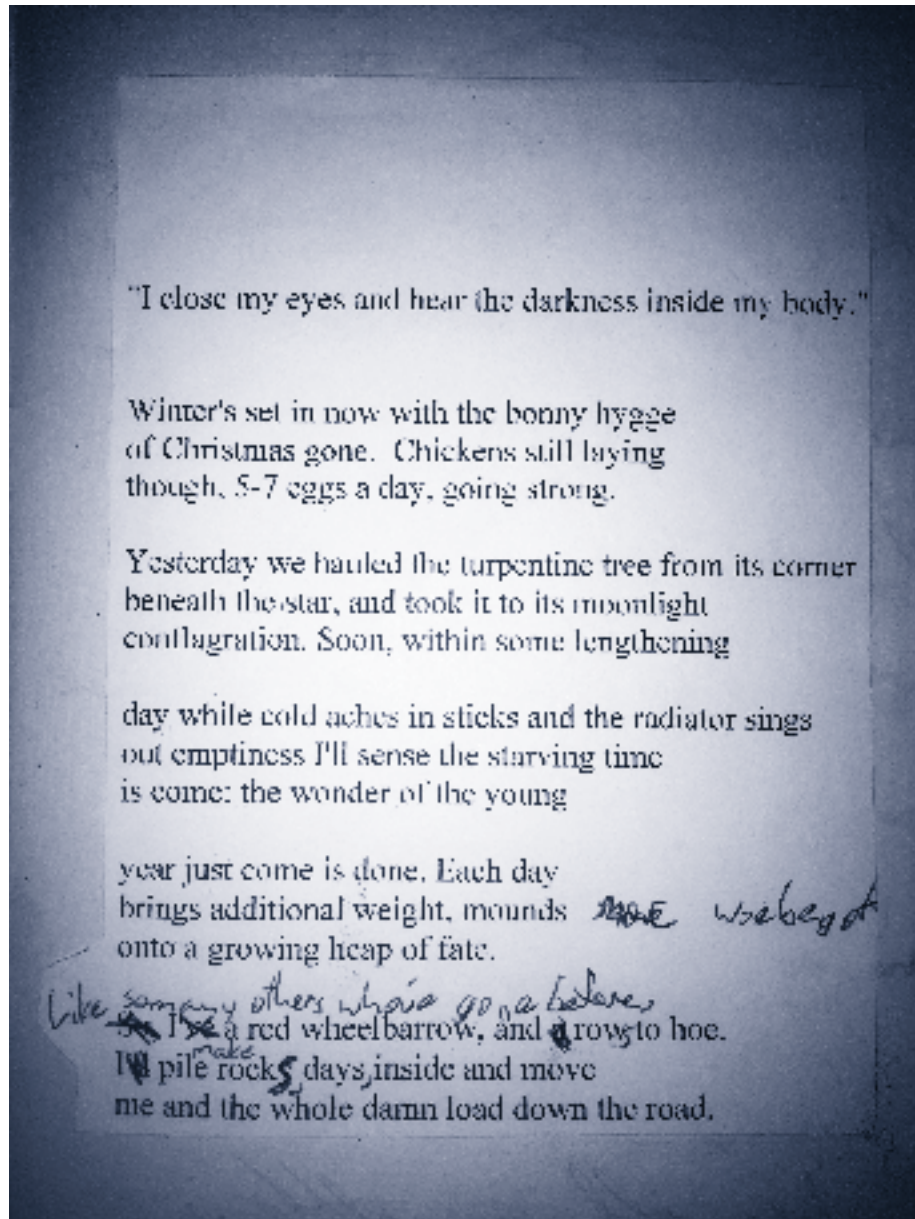 "I close my eyes and hear the darkness inside my body."
Winter's set in now with the bonny hygge
of Christmas gone.  Chickens still laying
though, 5-7 eggs a day, going strong.
Yesterday we hauled the turpentine tree from its corner
beneath the star, and took it to its moonlight
conflagration. Soon, within some lengthening
day while cold aches in sticks and the radiator sings
out emptiness I'll sense the starving time
is come: the wonder of the young
year just come is done. Each day
brings additional weight, mounds woebegot
onto a growing heap of fate.
Like so many others who've gone before
I a red wheelbarrow, and rows to hoe.
make
I pile rocks, days, inside and move
me and the whole damn load down the road.